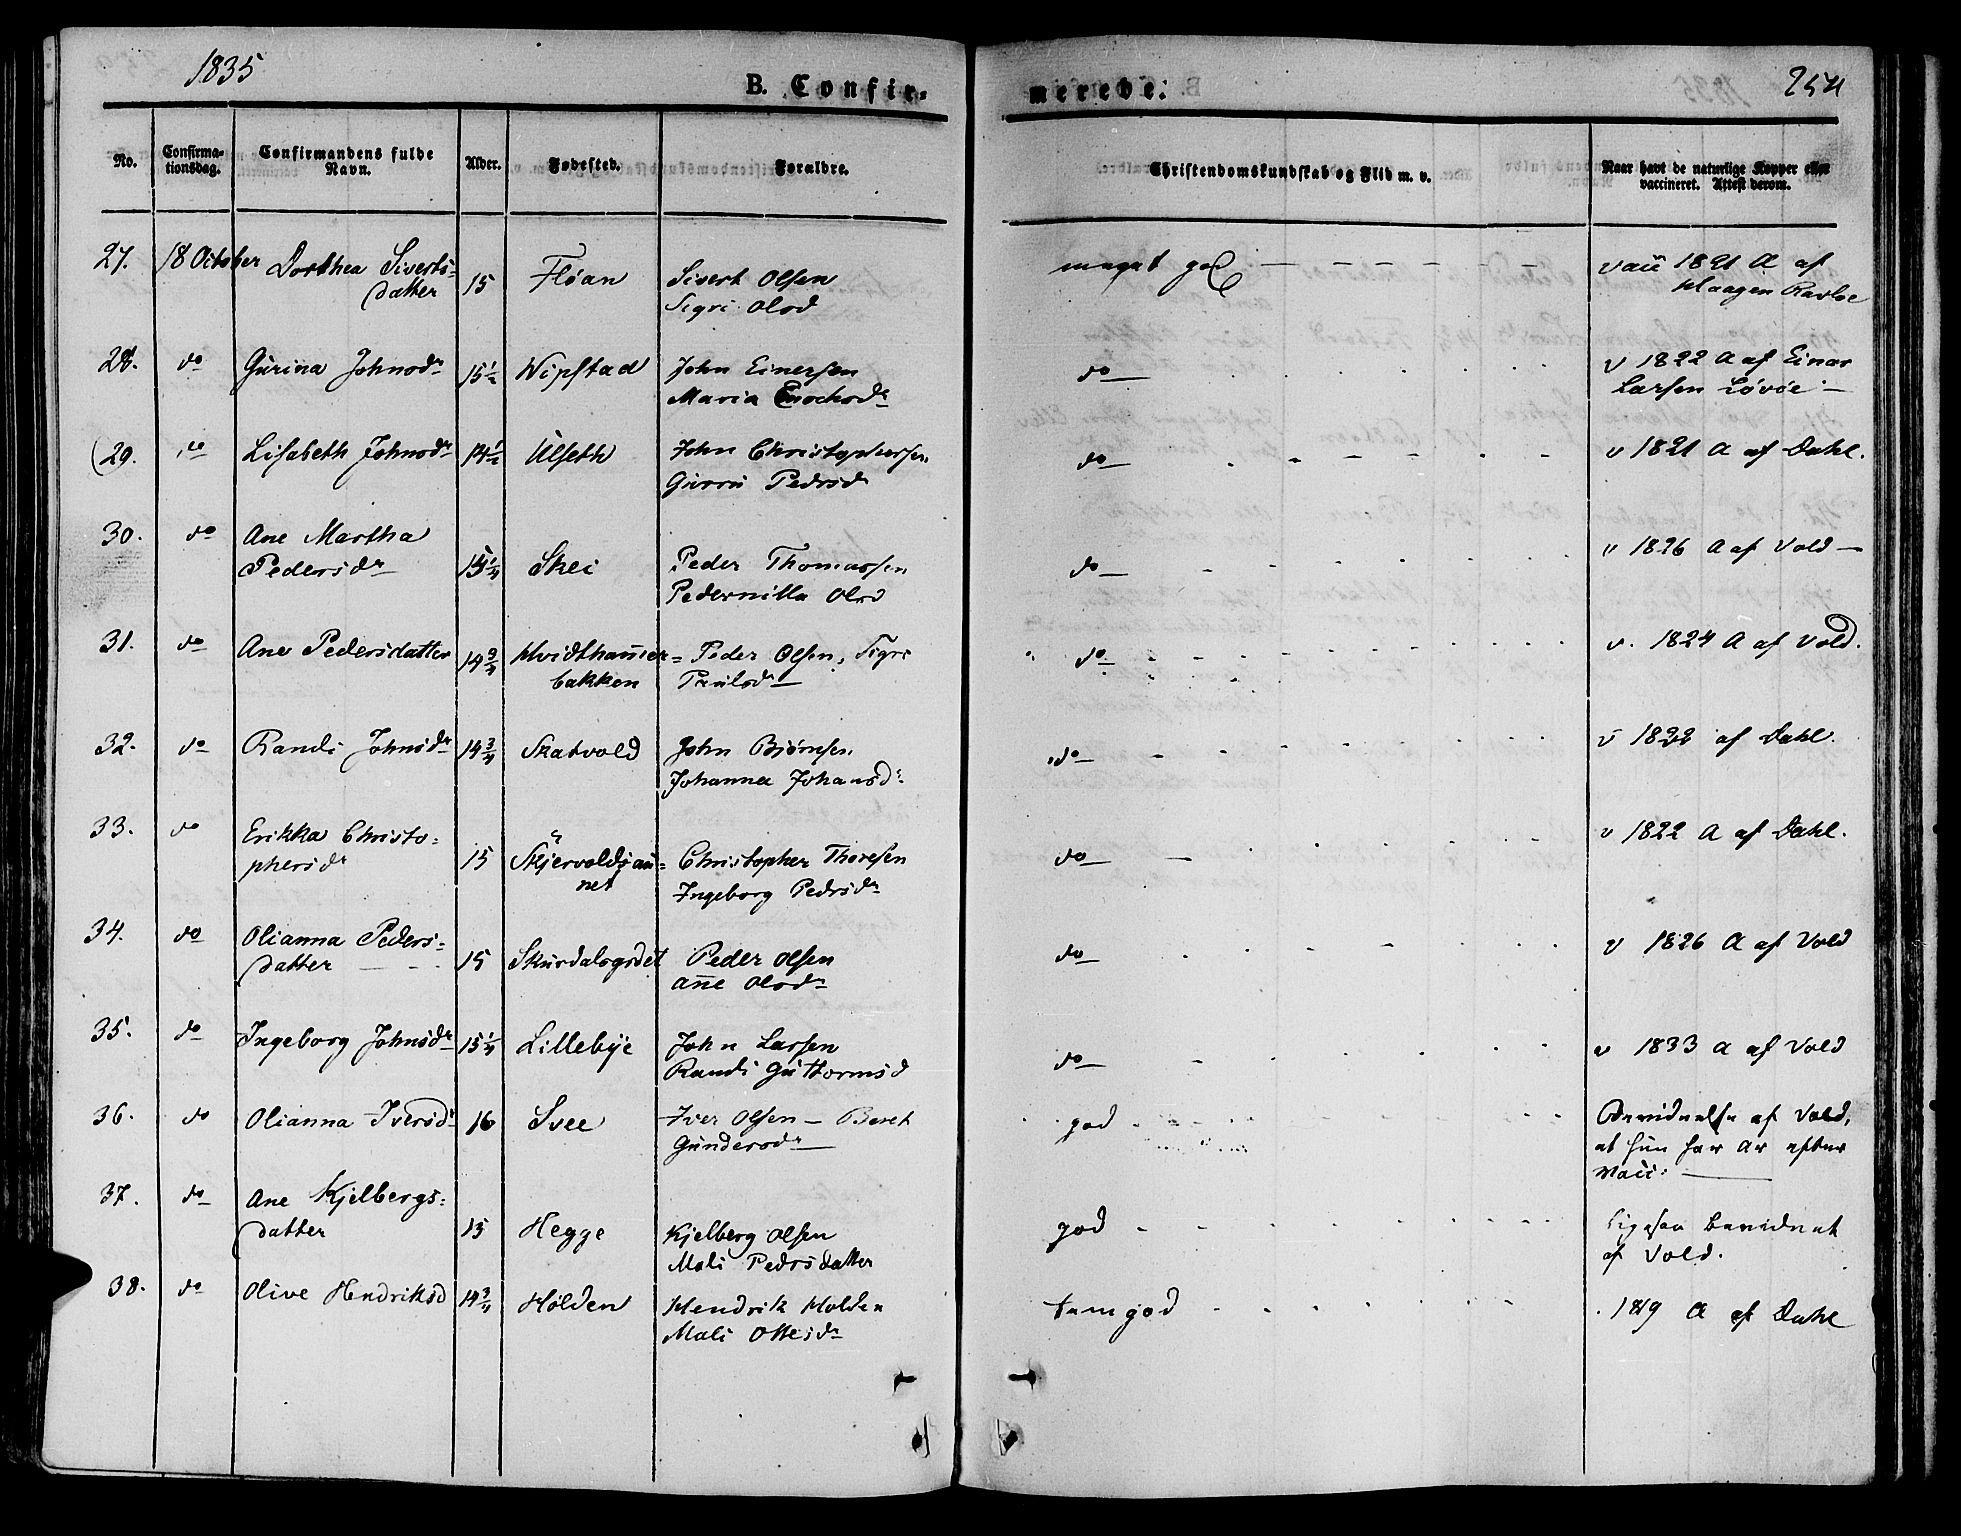 1835
B. Confir-
merede.
254
No.
Confirma-
tionsdag.
Confirmandens fulde
Navn.
Alder.
Fødested.
Forældre.
Christendomskundskab og Flid m. v.
Naar havt de naturlige Kopper eller
vaccineret. Attest derom.
27. 18 October Dorthea Siverts-
datter 15 Fløan Sivert Olsen
Sigri Olsd
meget god vacc 1821 A af
Haagen
28. do Gurina Johnsdr 15½ Wipstad John Einersen
Maria Enochsdr
do v 1822 A af Einar
Larsen Løvøe
29. do Lisabeth Johnsdr 14½ Ulseth John Christophersen
Gurru Pedrsd
do v 1821 A af Dahl.
30. do Ane Martha
Pedersdr Skei Peder Thomassen
Pedernilla Olsd
do v 1826 A af Vold
31. do Ane Pedersdatter 14¾ Hvidthammer-
bakken Peder Olsen, Sigri
Paulsdr
do v. 1824 A af Vold.
32. do Randi Johnsdr 14¾ Skatvold John Bjørnsen
Johanna Johansdr
do v 1822 af Dahl.
33. do Erikka Christo-
phersdr 15 Skjervoldsau-
net Christopher Thoresen
Ingeborg Pedrsdr
do v 1822 A af Dahl.
34. do Olianna Peders-
datter 15 Peder Olsen
Ane Olsdr
do v 1826 A af Vold
35. do Ingeborg Johnsdr 15¼ Lillebye John Larsen
Randi Guttormsd
do v 1833 A af Vold
36. do Olianna Iversdr 16 Svee Iver Olsen – Beret
Gundersdr
god Bevidnelse af Vold,
at hun har Ar efter
Vacc:
37. do Ane Kjelbergs-
datter 15 Hegge Kjelberg Olsen
Mali Pedrsdatter
god Ligesaa bevidnet
af Vold.
38. do Olive Hendriksd 14¾ Holden Hendrik Holden
Mali Ottesdr
temgod 1819 A af Dahl